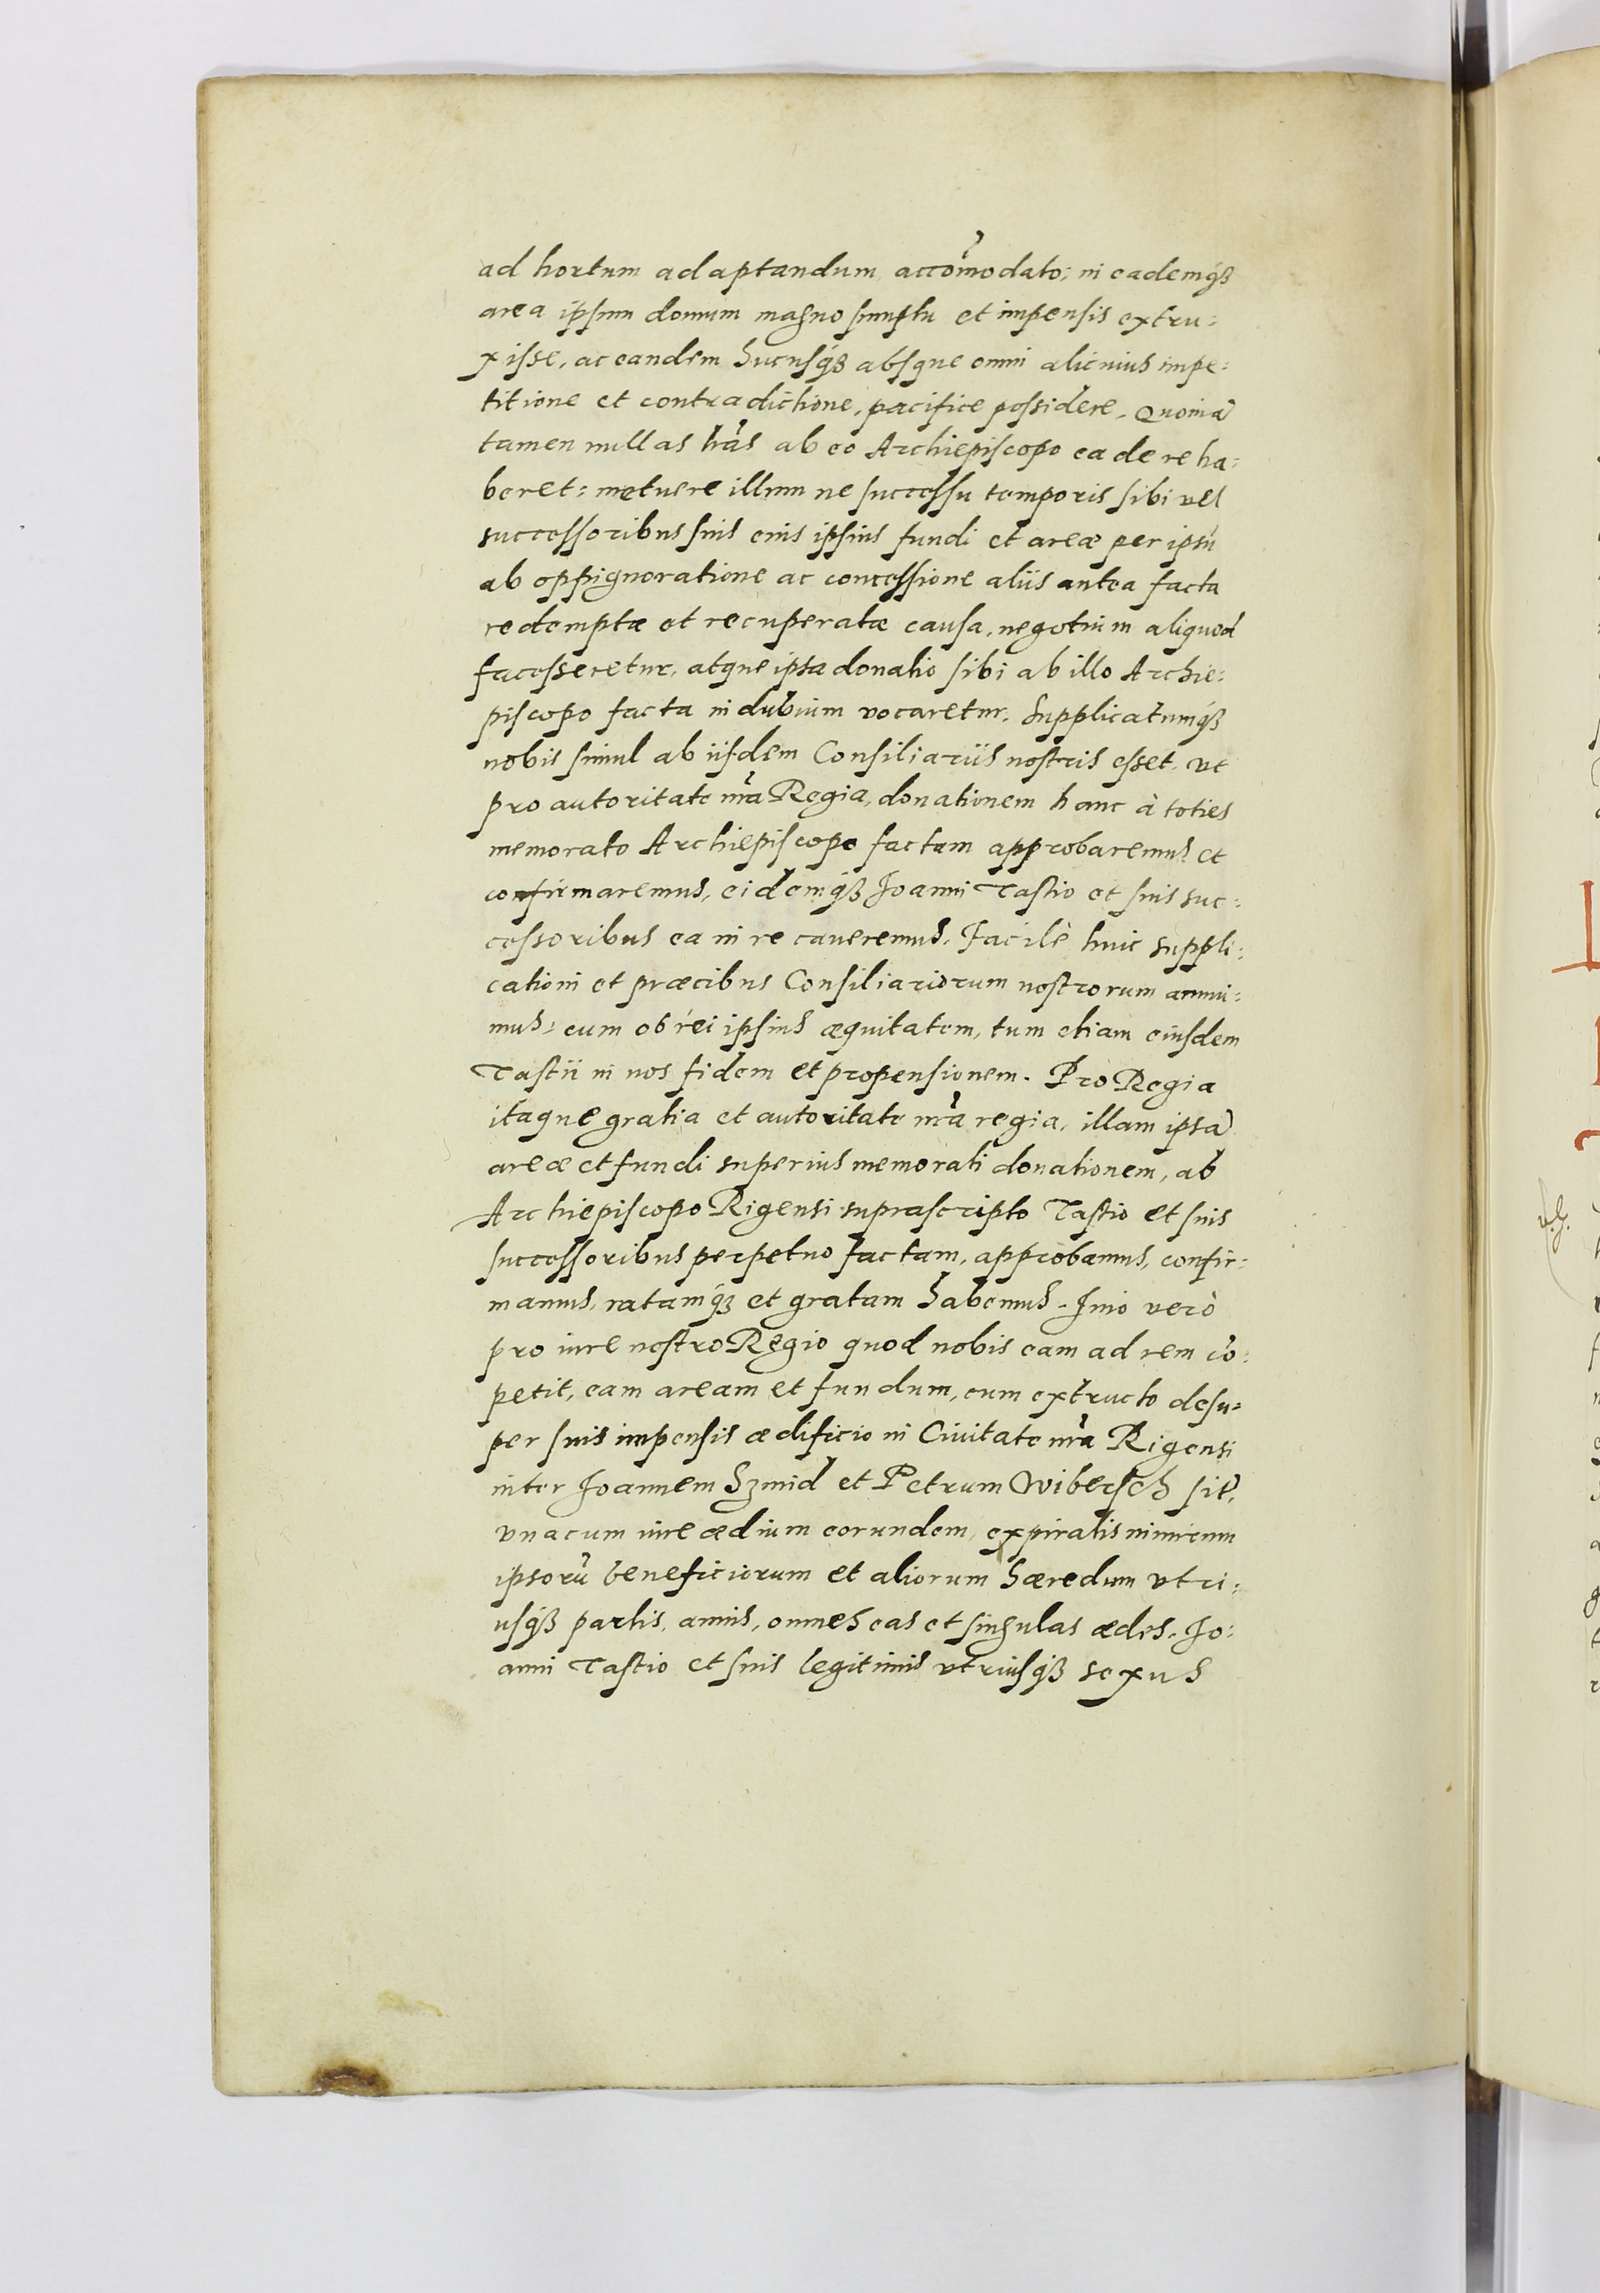 ad hortum adaptandum accom̃odato; in eademq́ꝫ
area ipsum domum magno sumptu et impensis extru:
xisse, ac eandem hucusq́ꝫ absque omni alicuius impe:
titione et contradictione, pacifice possidere. Quoniã
tamen nullas lr̃as ab eo Archiepiscopo ea de re ha:
beret: metuere illum ne successu temporis sibi vel
successoribus suis eius ipsius fundi et areæ per ipsũ
ab oppignoratione ac concessione aliis antea facta
redemptæ et recuperatæ causa, negotium aliquod
facesseretur, atque ipsa donatio sibi ab illo Archie:
piscopo facta in dubium vocaretur. Supplicatumq́ꝫ
nobis simul ab iisdem Consiliariis nostris esset, vt
pro autoritate nr̃a Regia, donationem hanc à toties
memorato Archiepiscopo factam approbaremus et
confirmaremus, eidemq́ꝫ Joanni Tastio et suis suc:
cessoribus ea in re caueremus. Facilè huic suppli:
cationi et præcibus Consiliariorum nostrorum annui:
mus, cum ob rei ipsius æquitatem, tum etiam eiusdem
Tastii in nos fidem et propensionem. Pro Regia
itaque gratia et autoritate nr̃a regia, illam ipsã
areæ et fundi superius memorati donationem, ab
Archiepiscopo Rigensi suprascripto Tastio et suis
successoribus perpetuo factam, approbamus, confir:
mamus, ratamq́ꝫ et gratam habemus. Imo verò
pro iure nostro Regio quod nobis eam ad rem cõ:
petit, eam aream et fundum, cum extructo desu:
per suis impensis ædificio in Ciuitate nr̃a Rigensi
inter Joannem Szmid et Petrum Wibersch sit.
vnacum iure ædium eorundem, expiratis nimirum
ipsorũ beneficiorum et aliorum hæredum vtri:
usq́ꝫ partis, annis, omnes eas et singulas ædes, Jo:
anni Tastio et suis legitimis vtriusq́ꝫ sexus